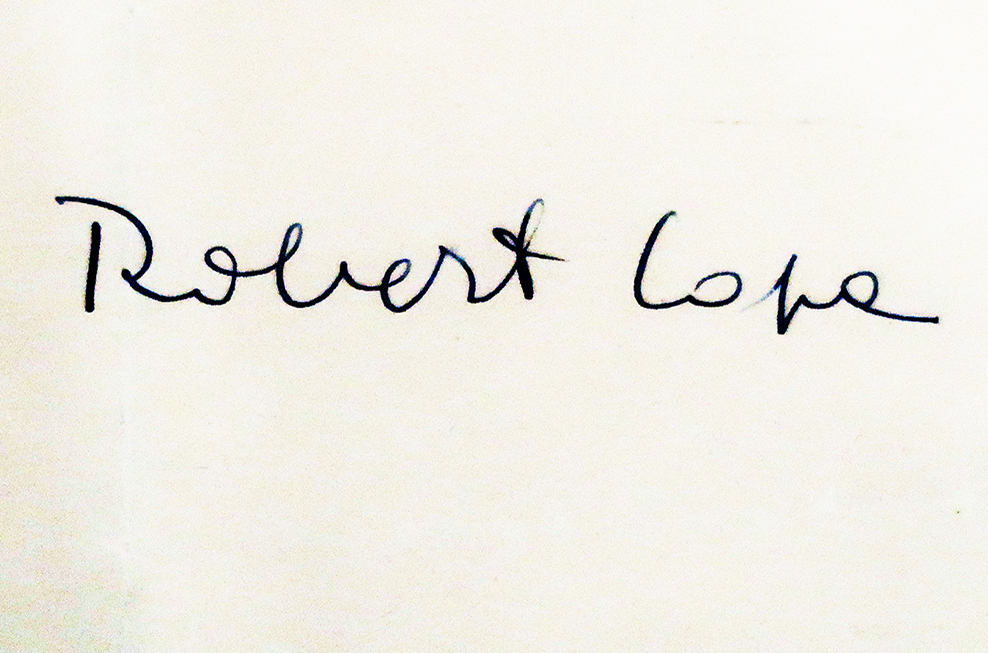 Robert Capa